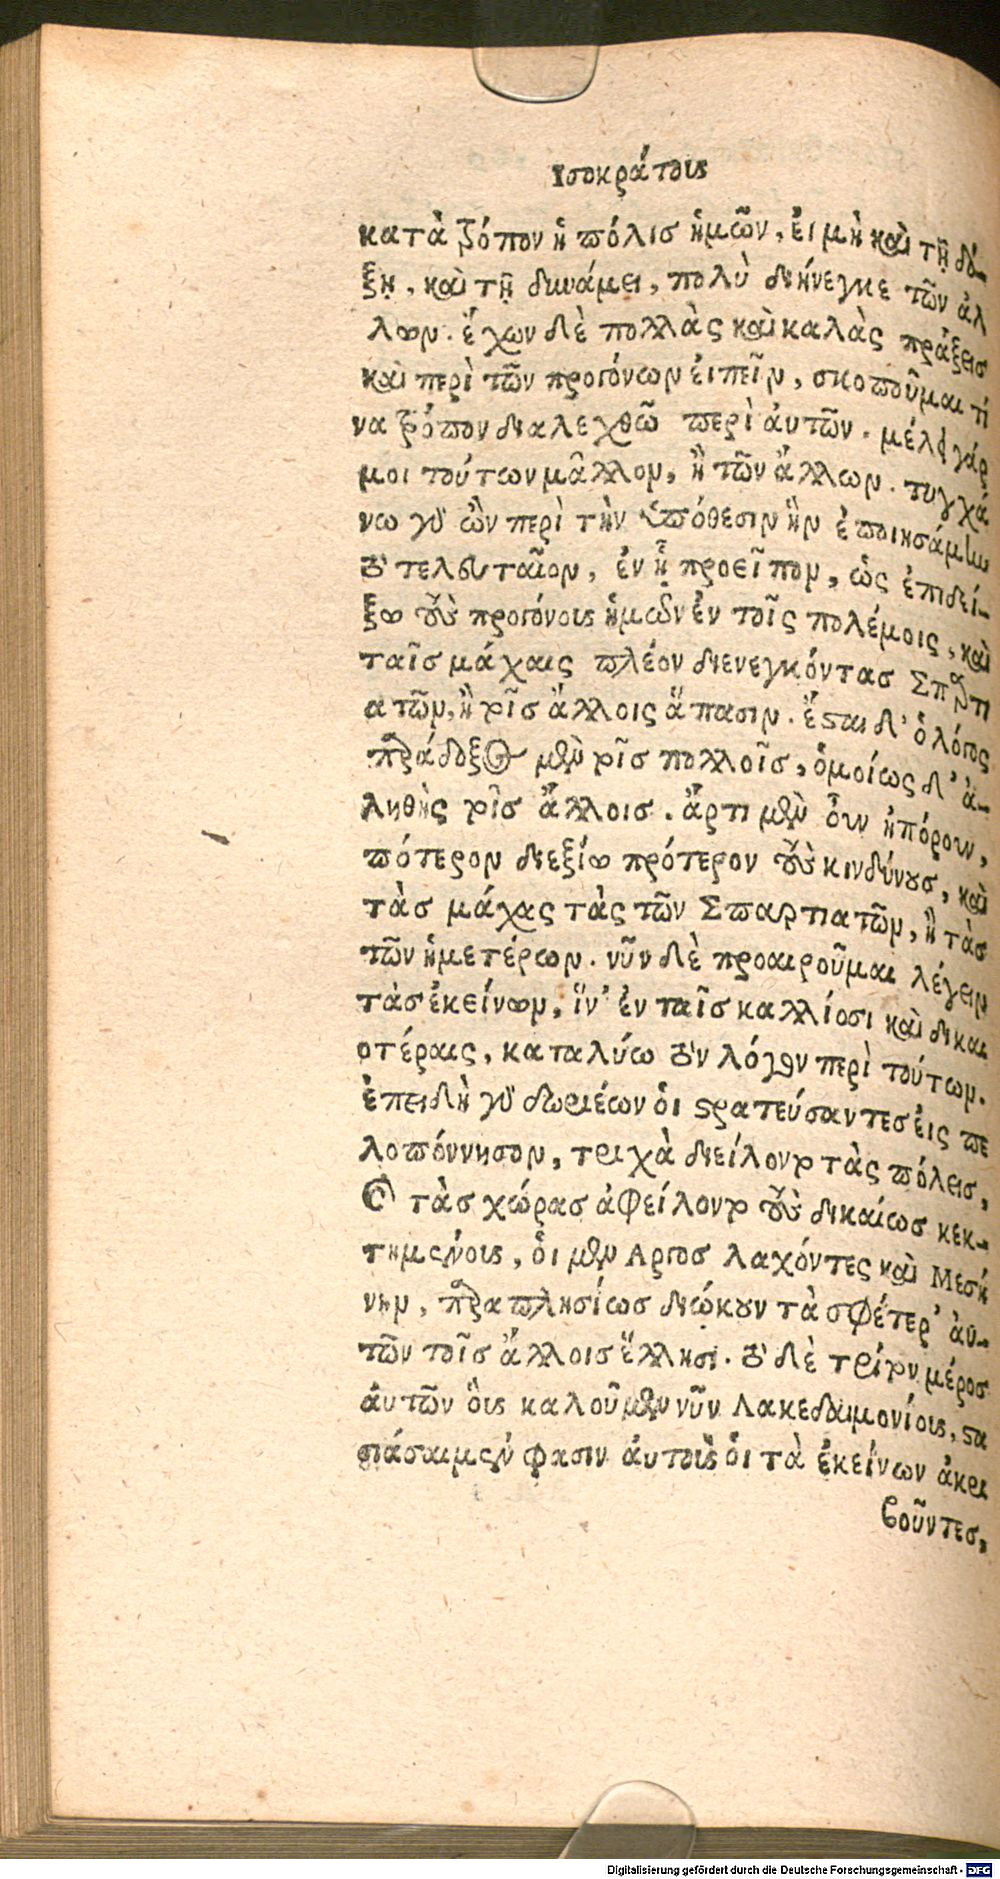 Ισοκράτους
κατὰ τρόπον ἡ πόλισ ἡμῶν, ἐι μὴ καὶ τῇ δό-
ξῃ, καὶ τῇ δυνάμει, πολὺ διήνεγκε τῶν ἀλ
λων. ἔχων δὲ πολλὰς καὶ καλὰς πράξεισ
καὶ περὶ τῶν προγόνων ἐιπεῖν, σκοποῦμαι τί
να τρόπον διαλεχθῶ περὶ ἀυτῶν. μέλει γάρ
μοι τούτων μᾶλλον, ἢ τῶν ἄλλων. τυγχά
νω γὰρ ὢν περὶ τὴν ὑπόθεσιν ἣν ἐποιησάμην
τὸ τελευταῖον, ἐν ᾗ προεῖπον, ὡς ἐπιδεί-
ξω τοὺς προγόνους ἡμῶν ἐν τοῖς πολέμοις, καὶ
ταῖσ μάχαις πλέον διενεγκόντασ Σπαρτι
ατῶν, ἢ τοῖσ ἄλλοις ἅπασιν. ἔσται δ' ὁ λόγος
παράδοξος μὲν τοῖσ πολλοῖσ, ὁμοίως δ' ἀ-
ληθὴς τοῖσ ἄλλοισ. ἄρτι μὲν οὖν ἠπόρουν,
πότερον διεξίω πρότερον τοὺς κινδύνουσ, καὶ
τὰσ μάχας τὰς τῶν Σπαρτιατῶν, ἢ τὰσ
τῶν ἡμετέρων. νῦν δὲ προαιροῦμαι λέγειν
τὰσ ἐκείνων, ἵν' ἐν ταῖσ καλλίοσι καὶ δικαι
οτέραις, καταλύω τὸν λόγον περὶ τούτων.
ἐπειδὴ γὰρ δωριέων ὁι στρατεύσαντεσ ἐις πε
λοπόννησον, τριχὰ διείλοντο τὰς πόλεισ,
καὶ τὰσ χώρασ ἀφείλοντο τοὺς δικαίωσ κεκ-
τημένους, ὁι μὲν Αργοσ λαχόντες καὶ Μεσή
νην, παραπλησίωσ διώκουν τὰ σφέτερ' ἀυ-
τῶν τοῖσ ἄλλοισ ἕλλησι. τὸ δὲ τρίτον μέροσ
ἀυτῶν ὃυς καλοῦμεν νῦν Λακεδαιμονίους, στα
σιάσαι μέν φασιν ἀυτοὺς ὁι τὰ ἐκείνων ἀκρι
βοῦντεσ,
Digitalisierung gefördert durch die Deutsche Forschungsgemeinschaft - DFG